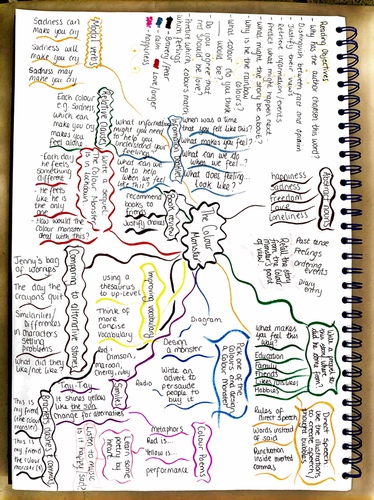 Reading Objectives
- Why has the author chosen this word?
- Distinguish between fact and opinion
- Justify their views
- Retrieve information/events
- Predict what might happen next
- What might the story be about?
- Why is he the rainbow
monster?
- What colour do you think
____ would be?
- Do you agree that
red should be love?
- Predict which colours match
which feelings
Love/anger
calm
happiness
Modal verbs
Sadness can
Make you cry
Sadness will
make you cry
Sadness may
make you cry
Relative clauses
Each colour
e.g. Sadness,
which can
make you cry,
makes you
feel alone
Information booklet
What information
might you need
to help you
understand your
feelings?
When was a time
that you felt like this?
What makes you feel?
What can we do
when we feel..?
What does feeling...
Look like?
What can we
do to help
when we feel
like this?
Abstract Nouns
happiness
Sadness
Freedom
Love
Loneliness
Write a sequel
The Colour Monster
is in lockdown
- Each day
he feels
something
different
- He feels
like he
is the only
one
- How would the
colour monster
deal with this?
Book review
recommend
books to
friends
Justify choices
The Colour
Monster
Retell the story
from the Colour
Monster's point
of view.
Past tense
Feelings
Ordering
events
Diary
entry
Comparing to alternative stories
Jenny's bag
of worries
The day the
crayons quit
Similarities/
Differences
in characters
setting
Problems
What did they
like/not like?
Improving vocabulary
using a
thesaurus
to up-level
Think of
more
concise
Vocabulary
Red:
crimson,
maroon,
cherry, ruby
Diagram
Design
a monster
Write an
advert to
persuade
people to
buy it
Radio
Pick one of the
Colours and design
a Colour Monster
What makes
you feel this
way?
Education
Family
Friends
Likes/dislikes
Hobbies
Direct Speech:
Use the illustrations
to create speech/
thought bubbles
Rules of
Direct Speech
Words instead
of said
Punctuation
inside inverted
commas
Similes
It shines yellow
like the sun
change for alternatives
Brackets, dashes, commas
This is
my friend
(the colour
monster)
Metaphors
Colour Poems?
Red is...
Yellow is...
performance
Learn some
poetry by
heart
Listen to music
is it happy, sad?